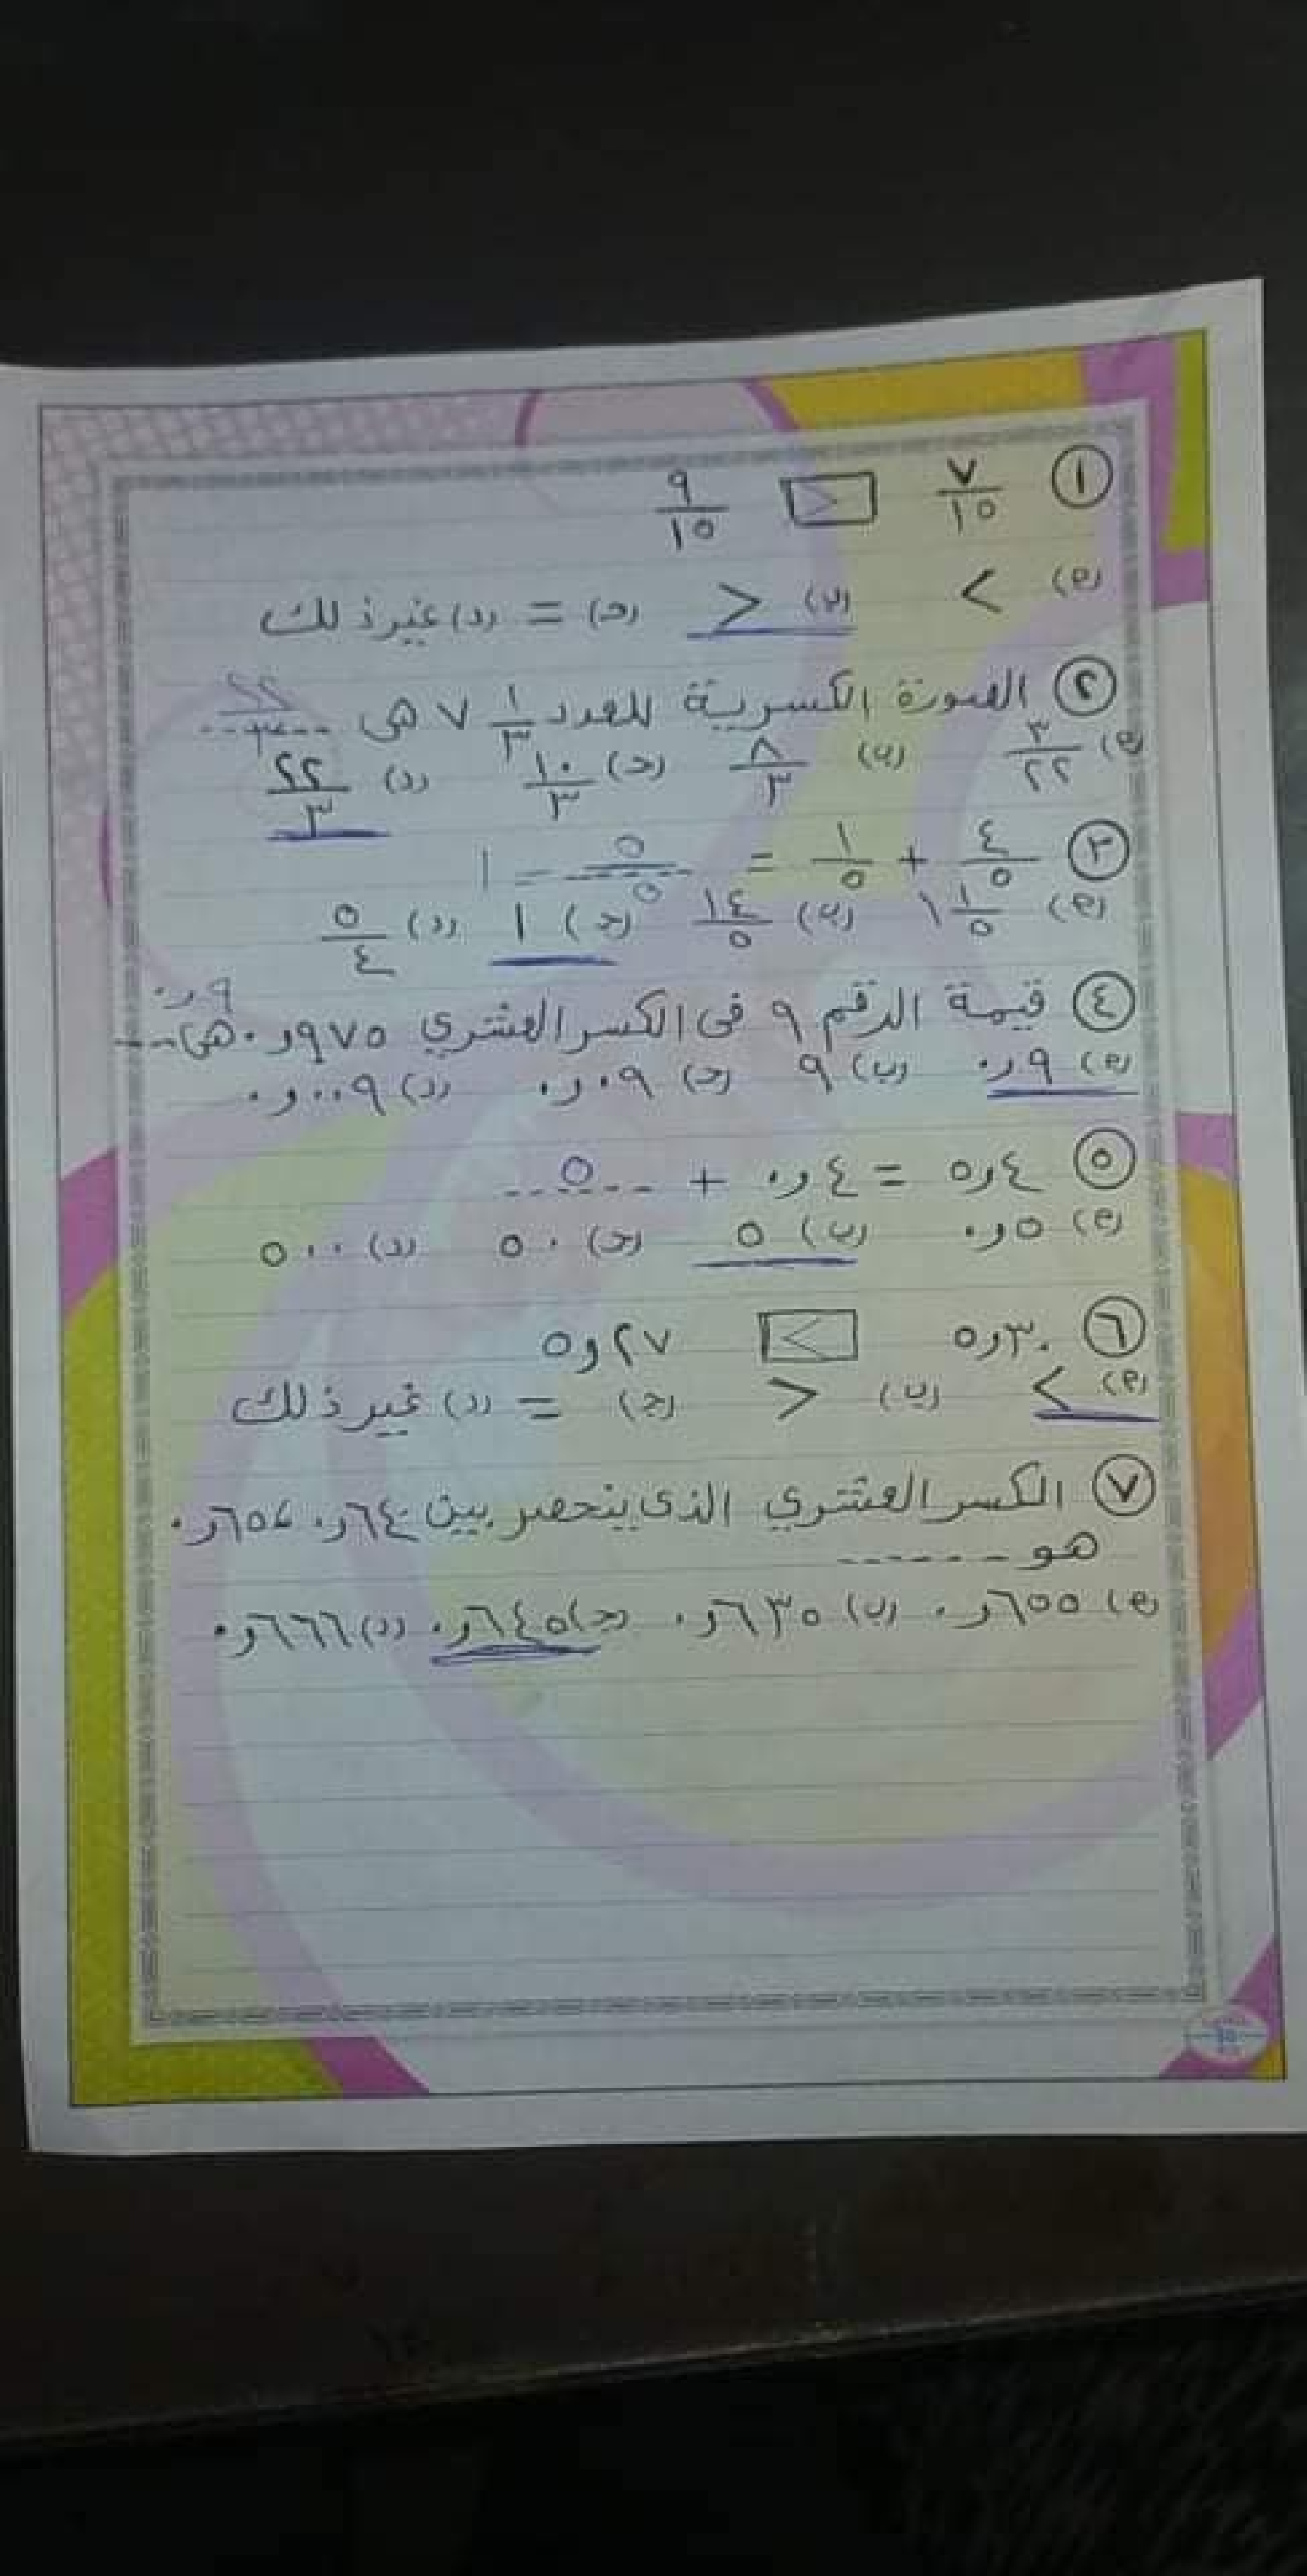 ① ٧/١٥ [>] ٩/١٥
(أ) < (ب) > (ج) = (د) غير ذلك
② الصورة الكسرية للعدد ٧ ١/٣ هى ٢٢/٣
(أ) ٣/٢٢ (ب) ٨/٣ (ج) ١٠/٣ (د) ٢٢/٣
③ ٤/٥ + ١/٥ = ٥/٥ = ١
(أ) ١ ١/٥ (ب) ١٤/٥ (ج) ١ (د) ٥/٤
④ قيمة الرقم ٩ فى الكسر العشري ٩٧٥و٠ هى ٩و٠
(أ) ٩و٠ (ب) ٩ (ج) ٠٩و٠ (د) ٠٠٩و٠
⑤ ٤و٥ = ٤و٠ + ٥
(أ) ٥و٠ (ب) ٥ (ج) ٥٠ (د) ٥٠٠
⑥ ٣٠و٥ [<] ٢٧و٥
(أ) < (ب) > (ج) = (د) غير ذلك
⑦ الكسر العشري الذى ينحصر بين ٦٤و٠ ، ٦٥و٠
هو ------
(أ) ٦٥٥و٠ (ب) ٦٣٥و٠ (ج) ٦٤٥و٠ (د) ٦٦٦و٠